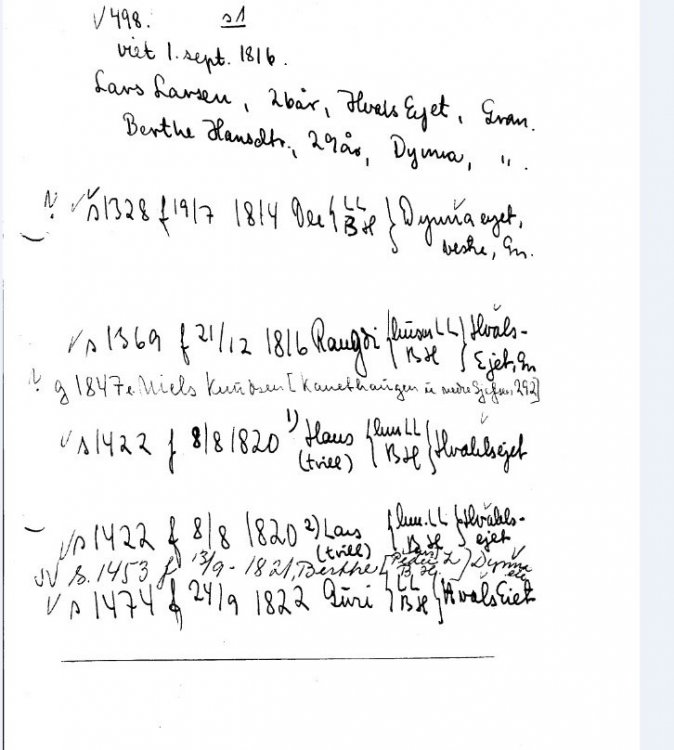 √498. s1
viet 1. sept. 1816.
Lars Larsen, 26år, Hvals Eyet, Gran.
Berthe Hansdtr., 29år, Dynna, ".
N. √ s1328 f 19/7 1814 Ole { LL BH } Dynna eyet,
vestre, Gn.
√ s1369 f 21/12 1816 Rangdi { husm LL BH } Hvåls-
Ejet, Gn
N. g 1847 e. Niels Knudsen [ Kanethaugen u nedre 292]
√ s1422 f 8/8 1820 1) Hans { husm LL BH } Hvahlsejet
(tvill)
√ s1422 f 8/8 1820 2) Lars { husm. LL BH } Hvahls-
(tvill) ejet
√ s. 1453 f 13/9 - 1821, Berthe [ L BH ] Dynna
√ s1474 f 24/9 1822 Guri { LL BH } HvålsEiet